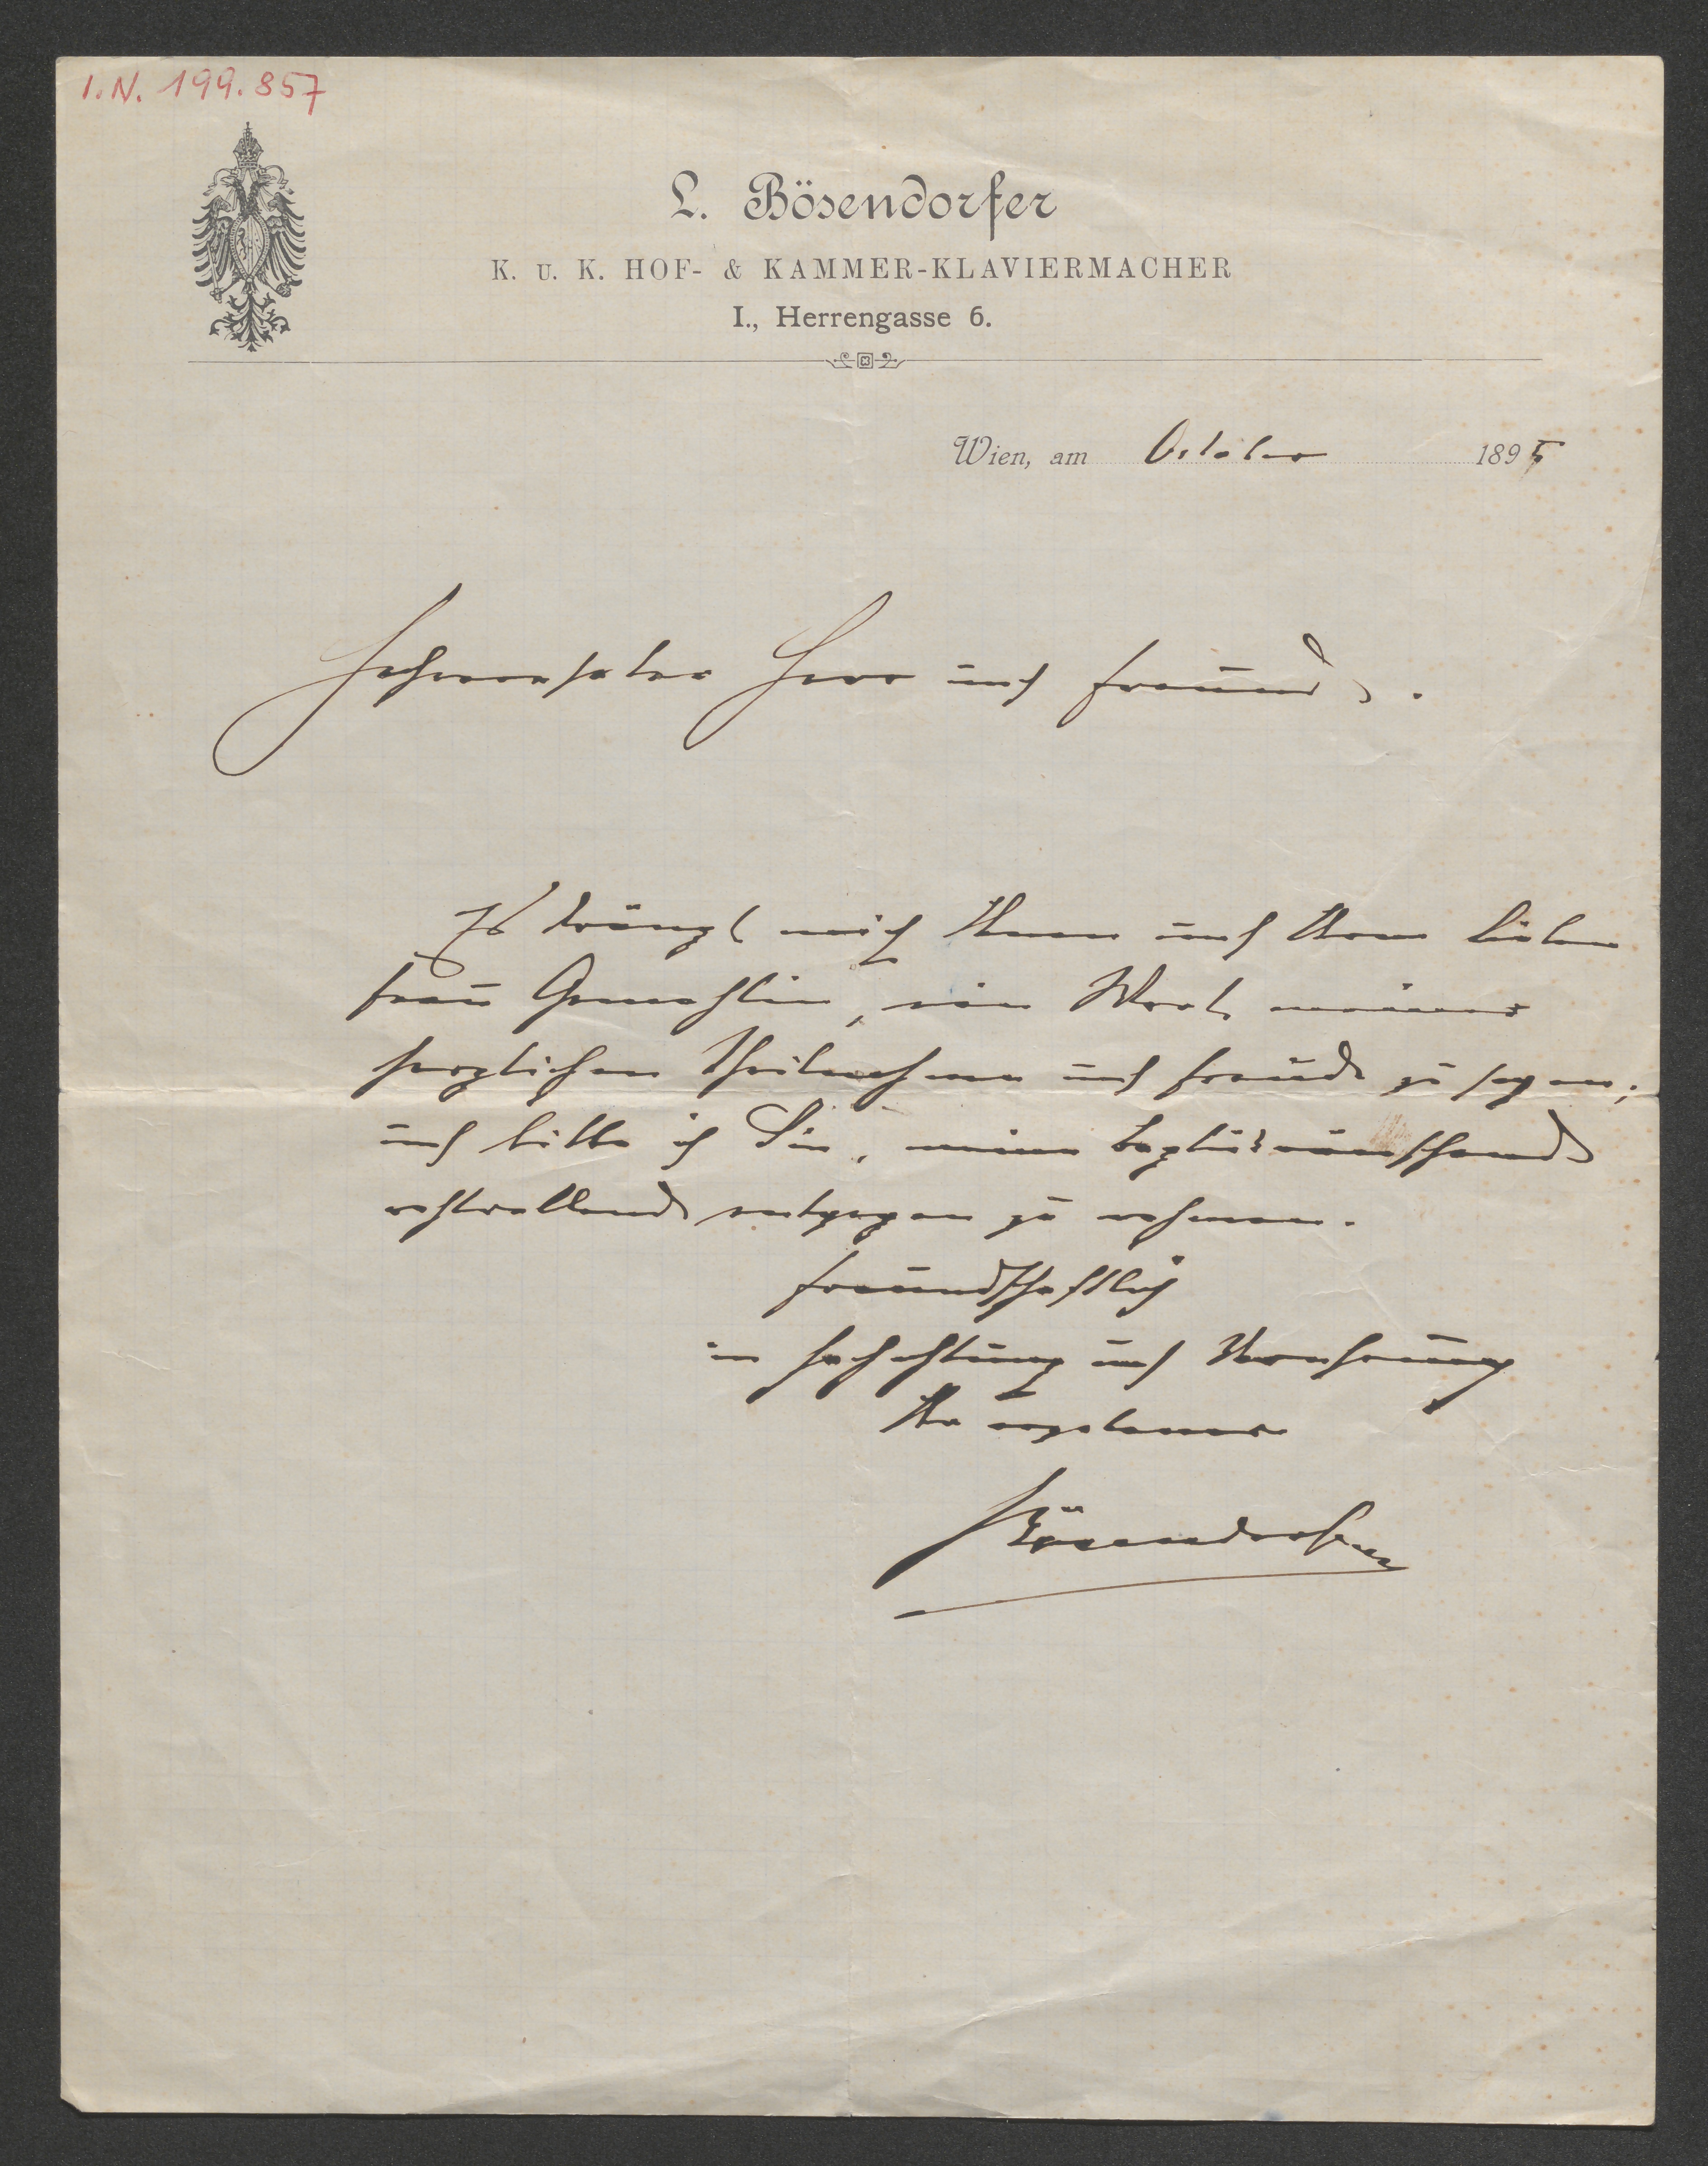 I.N. 199.857
L. Bösendorfer
K. U. K. HOF- & KAMMER-KLAVIERMACHER
I., Herrengasse 6.
Wien, am October 1895
Hochverehrter Herr und Freund.
Es drängt mich Ihnen und Ihrer lieben
Frau Gemahlin, ein Wort meiner
herzlichen Theilnahme und Freude zu sagen;
und bitte ich Sie, meine
wohlwollend entgegen zu nehmen.
Freundschaftlich
in Hochachtung und Verehrung
Ihr ergebener
Bösendorfer